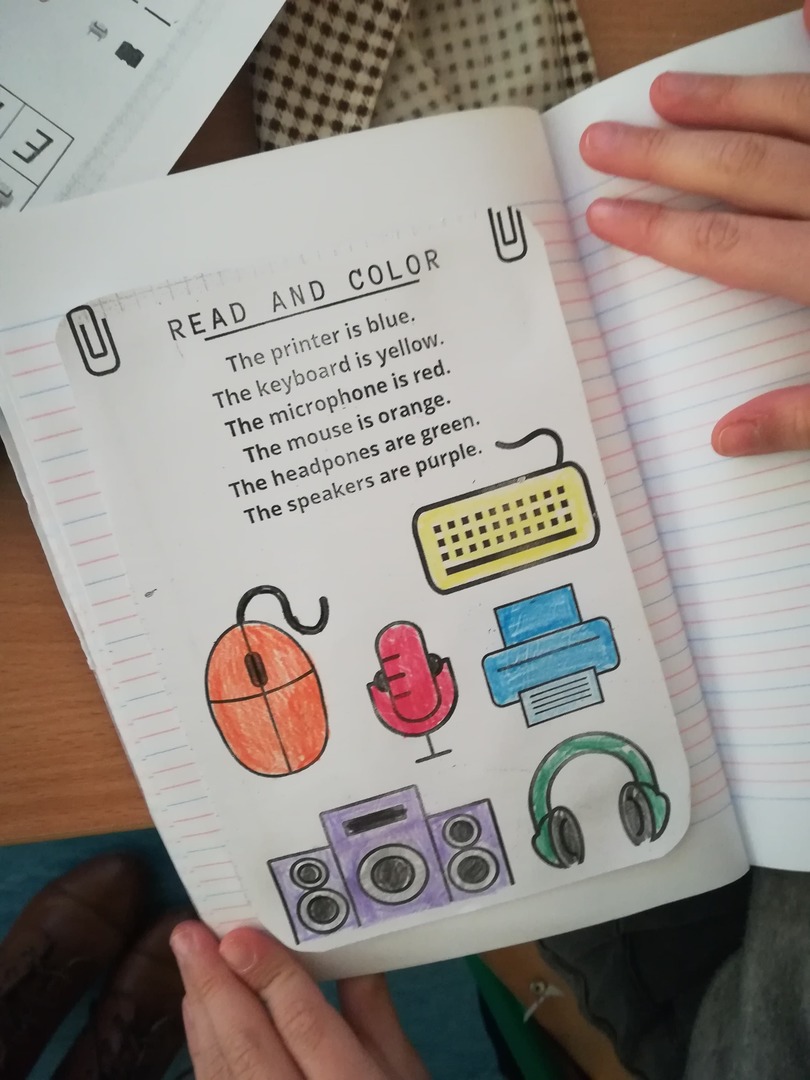 READ AND COLOR
The printer is blue.
The keyboard is yellow.
The microphone is red.
The mouse is orange.
The headpones are green.
The speakers are purple.
3